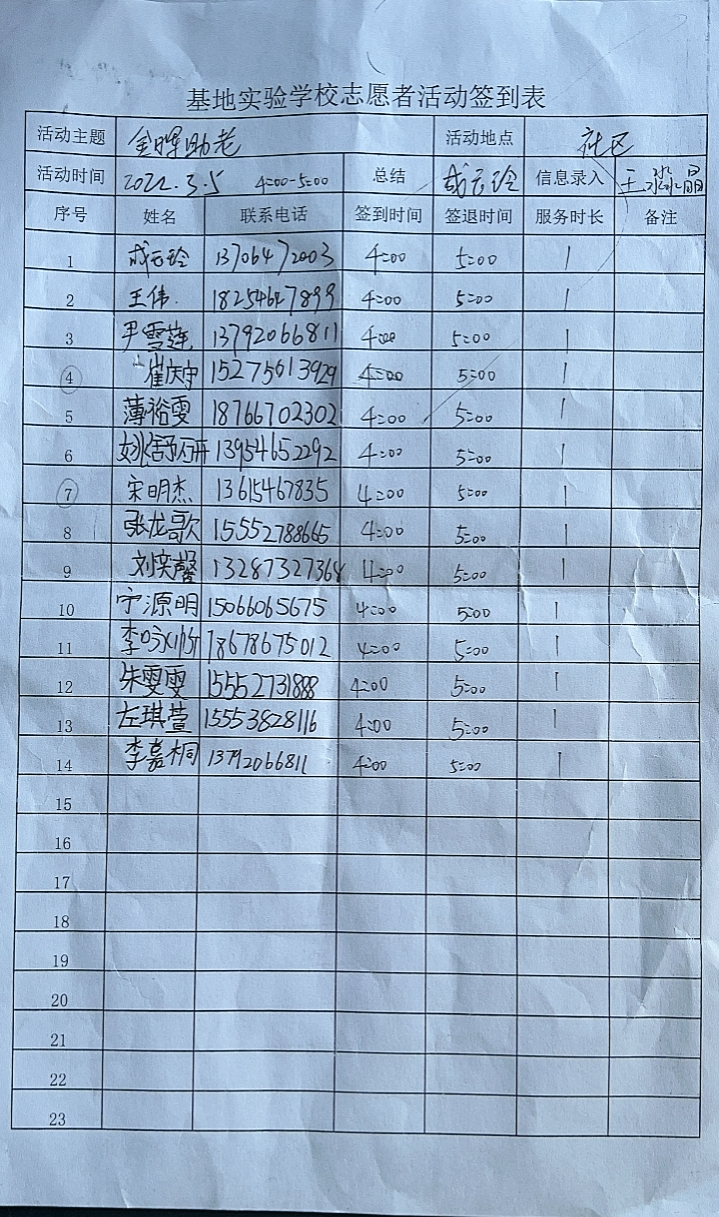 基地实验学校志愿者活动签到表
活动主题 金晖助老 活动地点 社区
活动时间 2022.3.5 4:00-5:00 总结 成云玲 信息录入 王淼晶
序号 姓名 联系电话 签到时间 签退时间 服务时长 备注
1 成云玲 13706472003 4:00 5:00 1
2 王伟. 18254627899 4:00 5:00 1
3 尹雯莲 13792066811 4:00 5:00 1
4 崔庆宁 15275613929 4:00 5:00 1
5 薄裕雯 18766702302 4:00 5:00 1
6 姚舒妍 13954652292 4:00 5:00 1
7 宋明杰 13615467835 4:00 5:00 1
8 张龙歌 15552788665 4:00 5:00 1
9 刘奕馨 13287327368 4:00 5:00 1
10 宁源明 15066065675 4:00 5:00 1
11 李 18678675012 4:00 5:00 1
12 朱雯雯 15552731888 4:00 5:00 1
13 左琪萱 15553828116 4:00 5:00 1
14 李嘉桐 13792066811 4:00 5:00 1
15
16
17
18
19
20
21
22
23